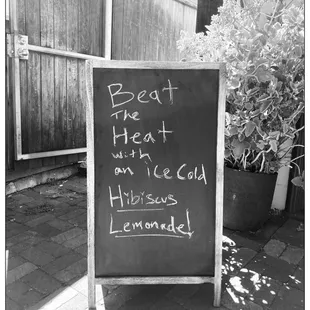 Beat
The
Heat
with
an ice Cold
Hibiscus
Lemonade!